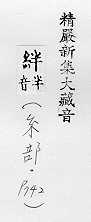 精嚴新集大藏音
絆 音半
(糸部·P342)